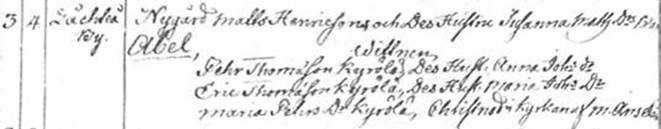 3 4 Nygård Matts Henricsons och Des Hustru Susanna Matts Dr
By. Abel,
Wittnen
Pehr Thomason Kyrölä, Des Hust. Anna Johs Dr
Eric Thomason Kyrölä, Des Hust. Maria Johs Dr
Maria Pehrs Dr Kyrölä, Christnad i Kyrkan af m.